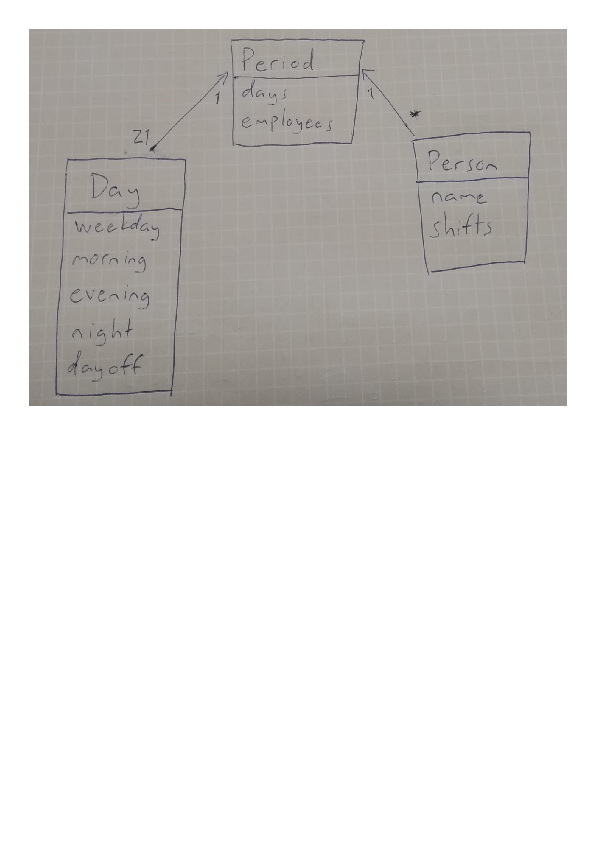 Period
days
employees
1
1
*
21
Day
weekday
morning
evening
night
dayoff
Person
name
shifts